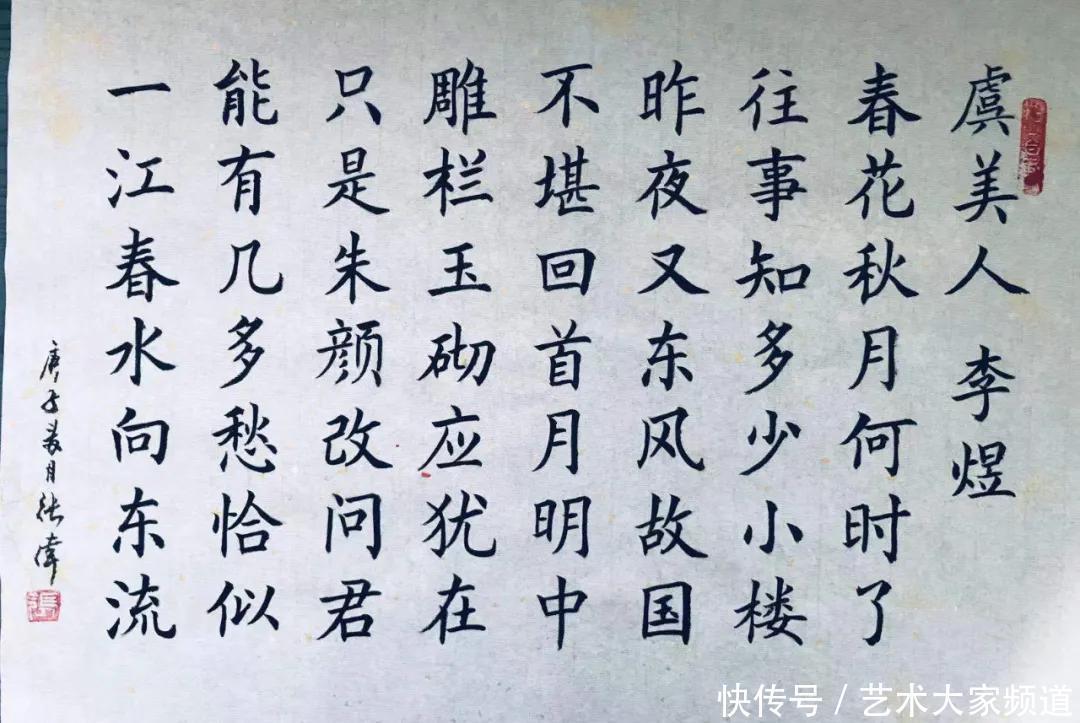 虞美人 李煜
春花秋月何时了
往事知多少小楼
昨夜又东风故国
不堪回首月明中
雕栏玉砌应犹在
只是朱颜改问君
能有几多愁恰似
一江春水向东流
庚子 月张伟
张
快传号 / 艺术大家频道